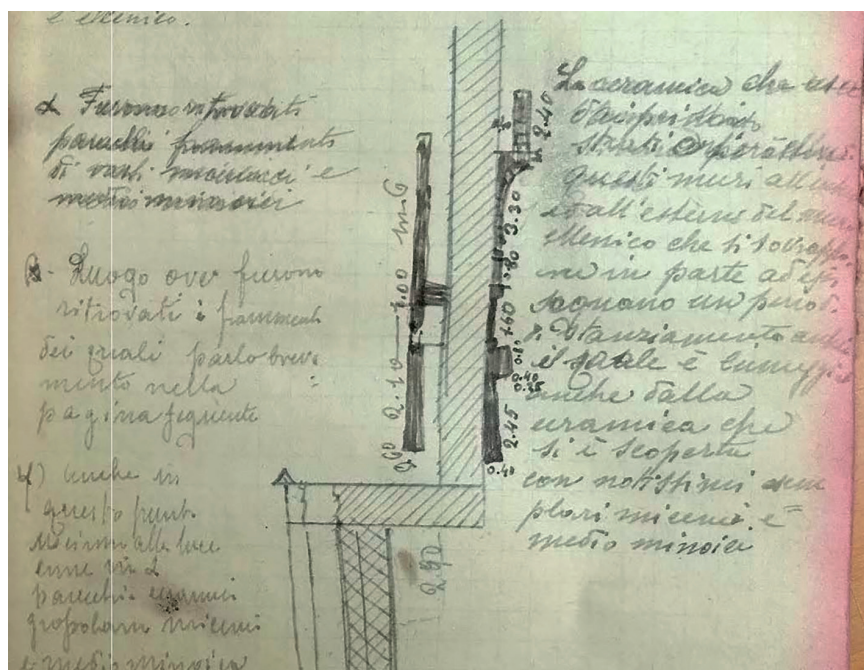 e ellenico.
α Furono ritrovati
parecchi frammenti
di vasi micenei e
medio minoici
β. Luogo ove furono
ritrovati i frammenti
dei quali parlo breve
mente nella
pagina seguente
γ) anche in
questo punto
alla luce
come in α
parecchi
grossolani micenei
e medio minoica
m. 6
1.00
2.10
0.60
2.40
3.30
1.80
1.60
0.80
0.40
0.35
2.45
0.40
2.90
La ceramica che
strati
questi muri
e all'esterno del muro
ellenico che si sovrappo
ne in parte ad essi
segnano un period.
il quale è
anche dalla
ceramica che
si è scoperta
con notissimi esem
plari micenei e
medio minoici